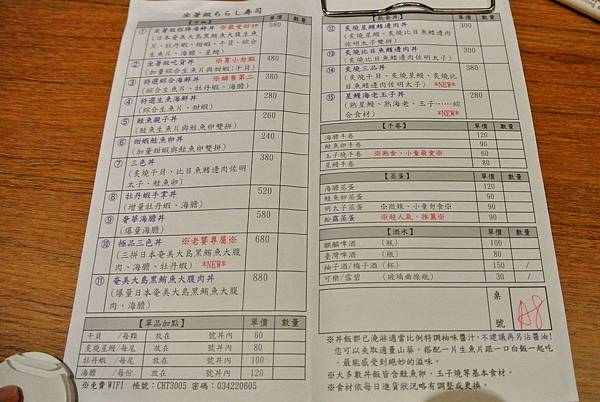 坐著做ちらし壽司
單價 數量
① 坐著做招牌海鮮丼 ※最受好評 580
(日本奄美大島黑鮪魚大腹生魚片、牡丹蝦、甜蝦、干貝、綜合生魚片、海膽、星鰻)
② 坐著做吃貨丼 ※貨小勿點 480
(加量綜合生魚片與甜蝦;干貝)
③ 特選綜合海鮮丼 ※銷售第二 380
(綜合生魚片、牡丹蝦、海膽)
④ 特選生魚海鮮丼 280
(綜合生魚片、甜蝦)
⑤ 鮭魚親子丼 260
(鮭魚生魚片與鮭魚卵雙拼)
⑥ 甜蝦鮭魚卵丼 240
(加量甜蝦與鮭魚卵雙拼)
⑦ 三色丼 380
(炙燒干貝、比目魚鰭邊肉佐明太子、鮭魚卵)
⑧ 牡丹蝦手掌丼 520
(增量牡丹蝦、海膽)
⑨ 奢華海膽丼 580
(爆量海膽)
⑩ 極品三色丼 ※老饕專屬※ 680
(三拼日本奄美大島黑鮪魚大腹肉、海膽、牡丹蝦) *NEW*
⑪ 奄美大島黑鮪魚大腹肉丼 880
(爆量日本奄美大島黑鮪魚大腹肉、海膽)
【單品加點】 單價 數量
干貝 /每顆 放在 號丼內 60
炙燒星鰻/每尾 放在 號丼內 80
牡丹蝦 /每尾 放在 號丼內 80
海膽 /每份 放在 號丼內 120
※免費WIFI 帳號:CHT3005 密碼:034220605
【熟食丼】 單價 數量
⑫ 炙燒星鰻鰭邊肉丼 300
(炙燒星鰻、炙燒比目魚鰭邊肉佐明太子雙拼)
⑬ 炙燒比目魚鰭邊肉丼 300
(炙燒比目魚鰭邊肉佐明太子)
⑭ 炙燒三品丼 380
(炙燒干貝、炙燒星鰻、炙燒比目魚鰭邊肉佐明太子) *NEW*
⑮ 星鰻海老玉子丼 280
(熟星鰻、熟海老、玉子……綜合食材) *NEW*
【手卷】 單價 數量
海膽手卷 120
鮭魚卵手卷 90
玉子燒手卷 ※熟食、小童最愛※ 60
星鰻手卷 80
【蒸蛋】 單價 數量
海膽蒸蛋 120
鮭魚卵蒸蛋 90
明太子蒸蛋 ※微辣、小童勿食※ 90
松露蒸蛋 ※超人氣、推薦※ 90
【酒水】 單價 數量
麒麟啤酒 (瓶) 100
臺灣啤酒 (瓶) 80
柚子酒/梅子酒 (杯) 150 /
可樂/雪碧 (玻璃曲線瓶) 30 /
桌號 A8
※丼飯都已澆淋適當比例特調柚味醬汁,不建議再另沾醬油!
您可以夾取適量山葵,搭配一片生魚片跟一口白飯一起吃
,最能感受到絕妙的滋味。
※大多數丼飯皆含鮭魚卵、玉子燒等基本食材。
※食材依每日進貨狀況略有調整或更換。